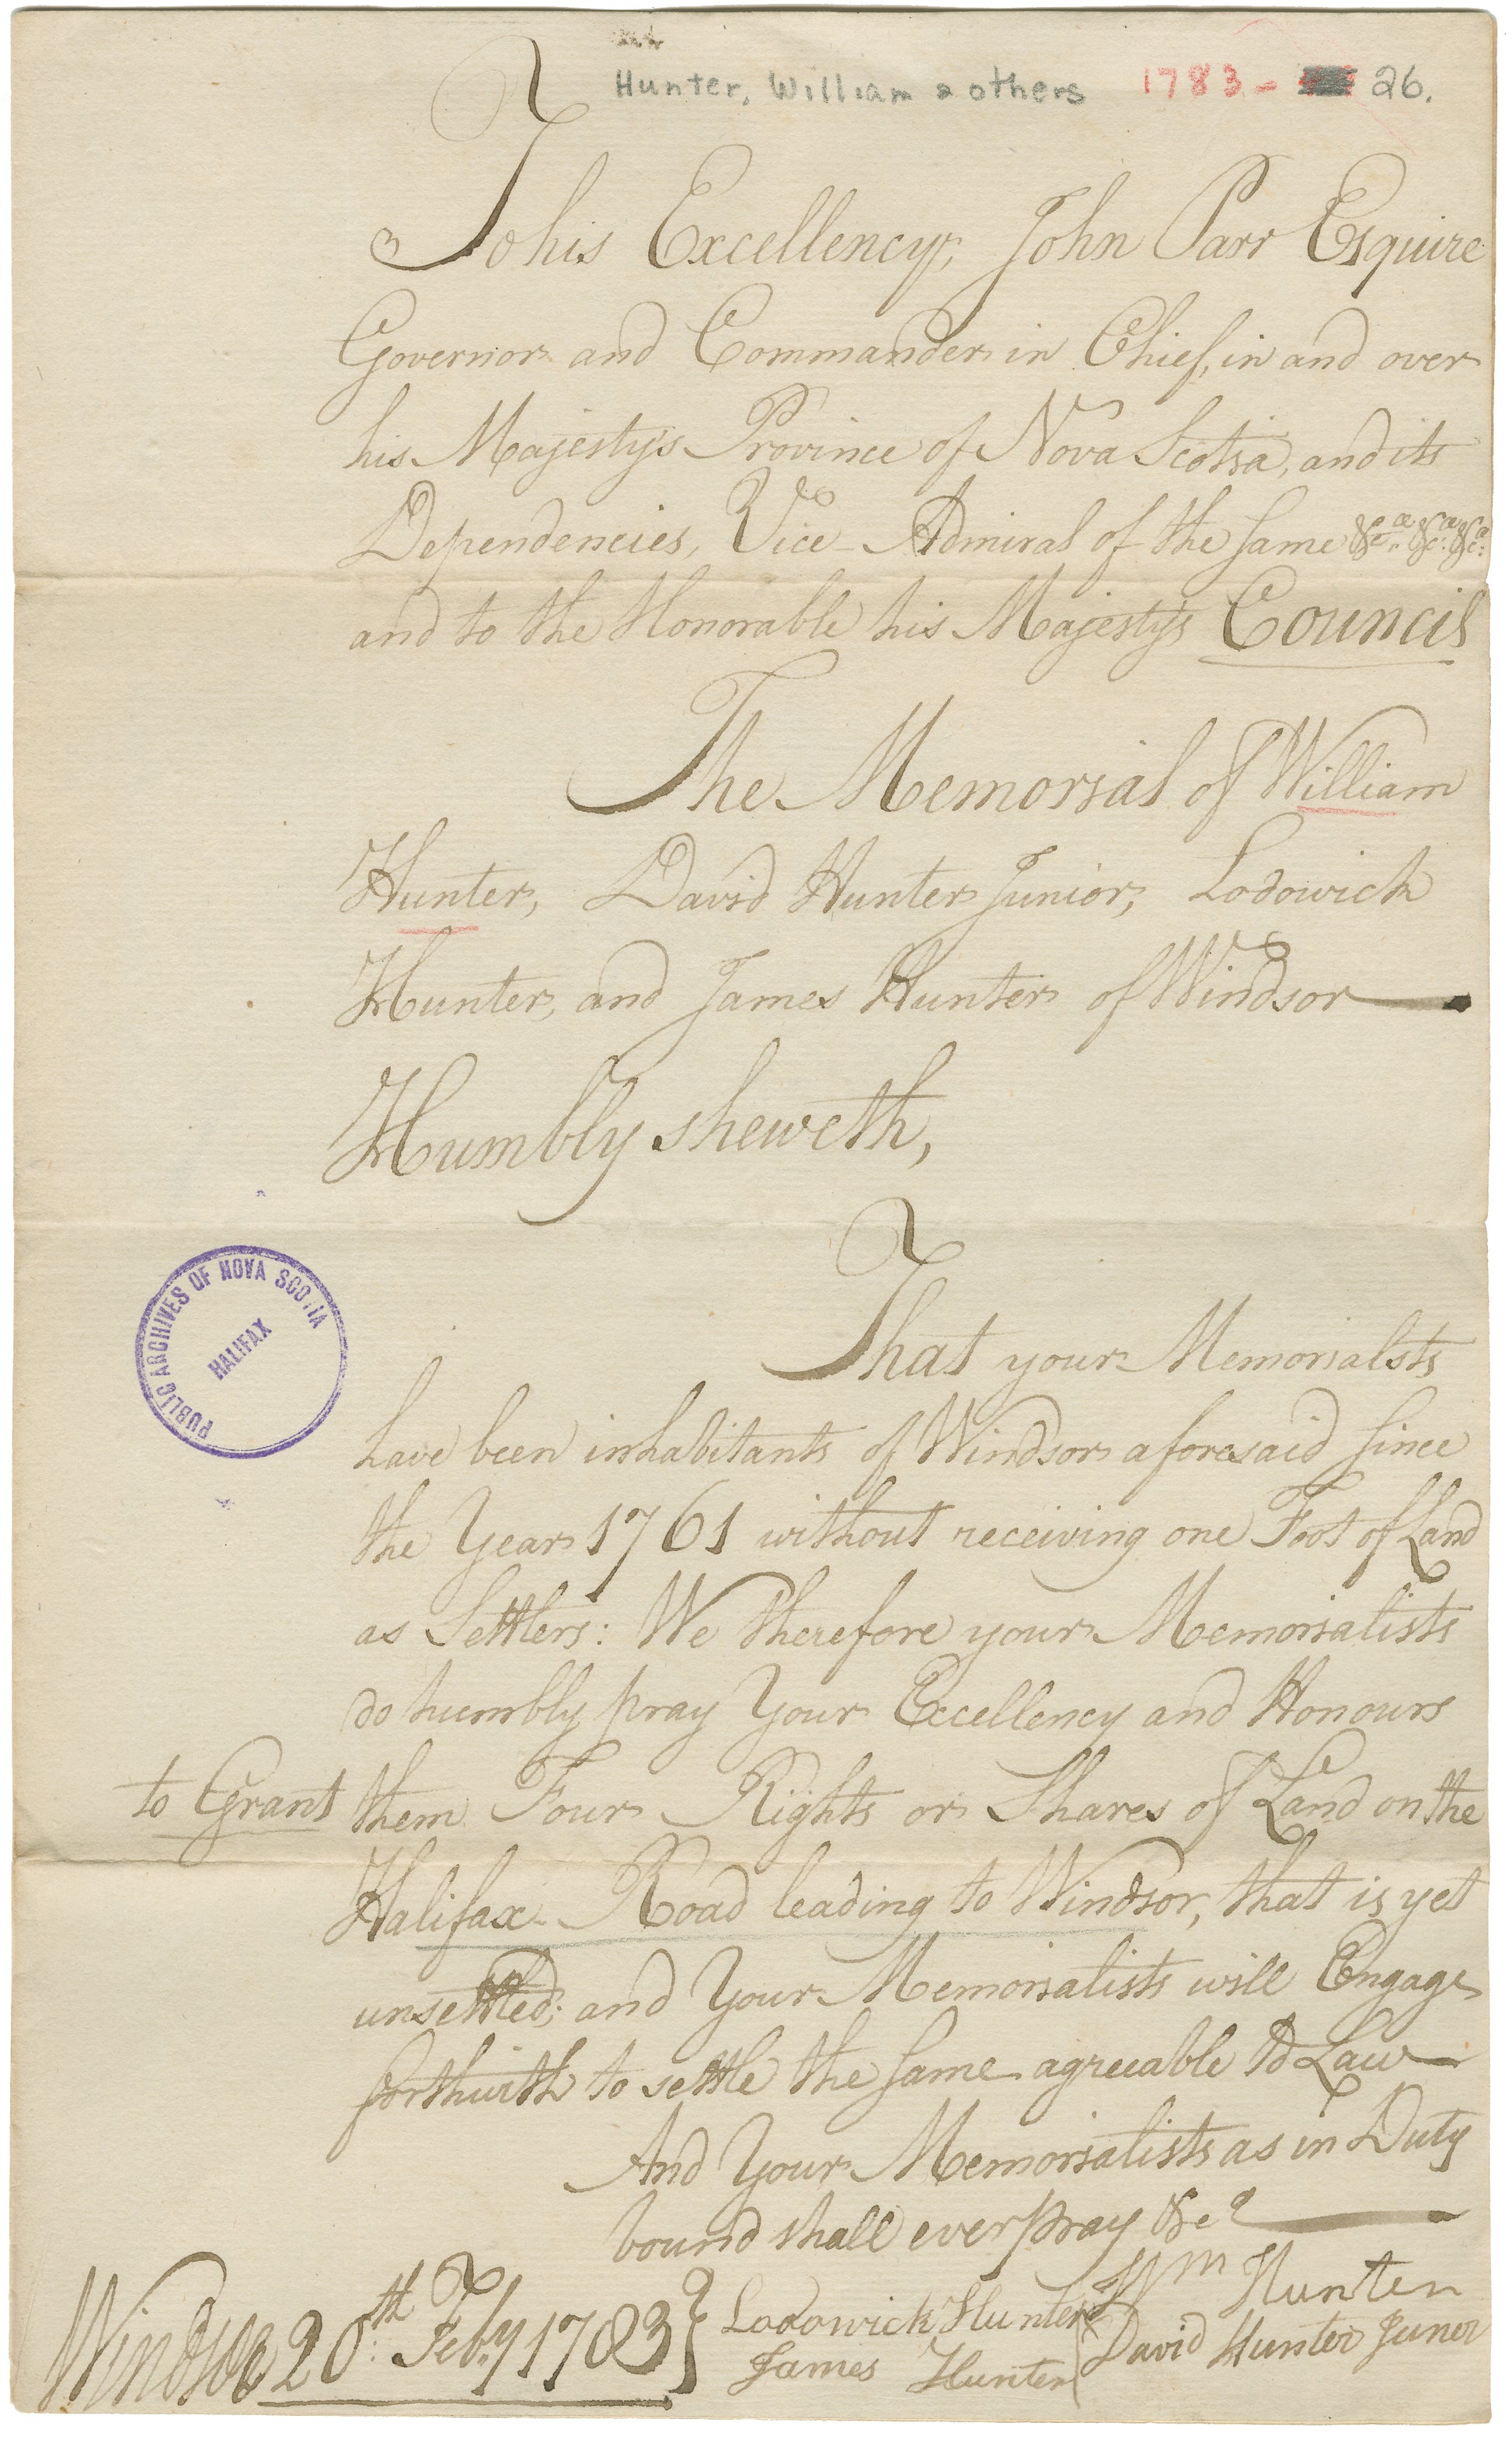 Hunter, William & others 1783 - 26.
To his Excellency, John Parr Esquire
Governor and Commander in Chief, in and over
his Majesty's Province of Nova Scotia, and its
Dependencies, Vice-Admiral of the Same &ca. &ca. &ca.
and to the Honorable his Majesty's Council
The Memorial of William
Hunter, David Hunter Junior, Lodowick
Hunter, and James Hunter of Windsor
Humbly sheweth,
That your Memorialsts
have been inhabitants of Windsor aforesaid Since
the Year 1761 without receiving one Foot of Land
as Settlers: We therefore your Memorialists
do humbly pray Your Excellency and Honours
to Grant them Four Rights or Shares of Land on the
Halifax-Road leading to Windsor, that is yet
unsettled; and Your Memorialists will Engage
forthwith to settle the Same agreeable to Law
And Your Memorialists as in Duty
bound shall ever pray &ca
Wm Hunter
Lodowick Hunter David Hunter Juner
James Hunter
Windsor 20th. Feby 1783 }
PUBLIC ARCHIVES OF NOVA SCOTIA
HALIFAX